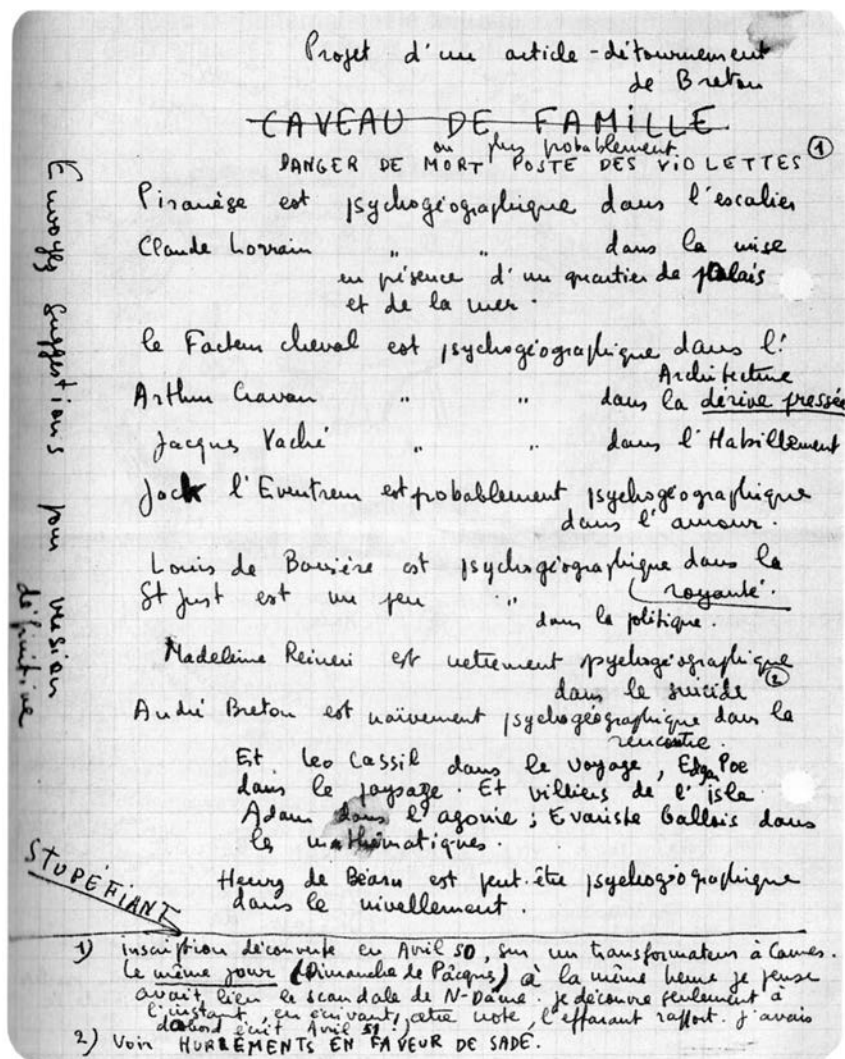 Projet d'un article-détournement
de Breton
CAVEAU DE FAMILLE
ou plus probablement
DANGER DE MORT POSTE DES VIOLETTES ①
Piranèse est psychogéographique dans l'escalier
Claude Lorrain " " dans la mise
en présence d'un quartier de palais
et de la mer.
le Facteur cheval est psychogéographique dans l'
Architecture
Arthur Cravan " " dans la dérive pressée
Jacques Vaché " " dans l'Habillement
Jack l'Eventreur est probablement psychogéographique
dans l'amour.
Louis de Bavière est psychogéographique dans la
royauté.
St Just est un peu "
dans la politique.
Madeleine Reineri est nettement psychogéographique
dans le suicide ②
André Breton est naïvement psychogéographique dans la
rencontre.
Et Leo Cassil dans le voyage, Edgar Poe
dans le paysage. Et villiers de l'isle
Adam dans l'agonie ; Evariste Gallois dans
les mathématiques.
Henry de Béarn est peut-être psychogéographique
dans le nivellement.
Envoyez suggestions pour version
définitive
STUPÉFIANT
1) inscription découverte en Avril 50, sur un transformateur à Cannes.
Le même jour (Dimanche de Pâcques) à la même heure je pense
avait lieu le scandale de N-Dame. je découvre seulement à
l'instant, en écrivant cette note, l'effarant rapport. j'avais
dabord écrit Avril 51 !)
2) Voir HURLEMENTS EN FAVEUR DE SADE.